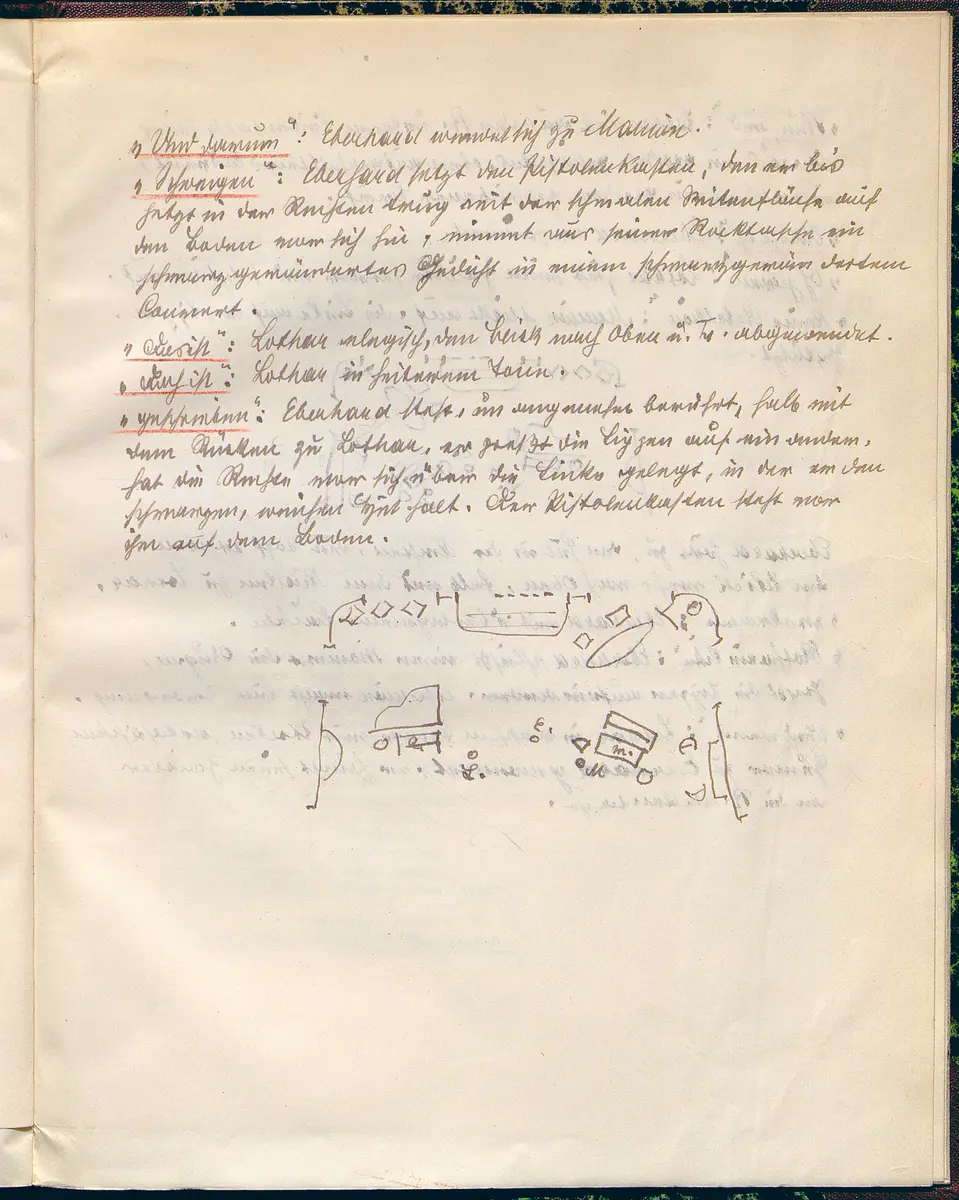 „Und darum“: Eberhard wendet sich zu Marion.
„Schweigen“: Eberhard setzt den Pistolenkasten, den er bis
jetzt in der Rechten trug mit der schmalen Seitenfläche auf
den Boden vor sich hin, nimmt aus seiner Rocktasche ein
schwarzgerändertes Gedicht in einem schwarzgeränderten
Couvert.
„Das ist“: Lothar elegisch, den Blick nach Oben u. abgewendet.
„Das ist“: Lothar in heiterem Tone.
„geschrieben“: Eberhard steht, unangenehm berührt, halb mit
dem Rücken zu Lothar, er preßt die Lippen auf einander,
hat die Rechte vor sich über die Linke gelegt, in der er den
schwarzen, weichen Hut hält. Der Pistolenkasten steht vor
ihm auf dem Boden.
E.
e
m.
L.
M